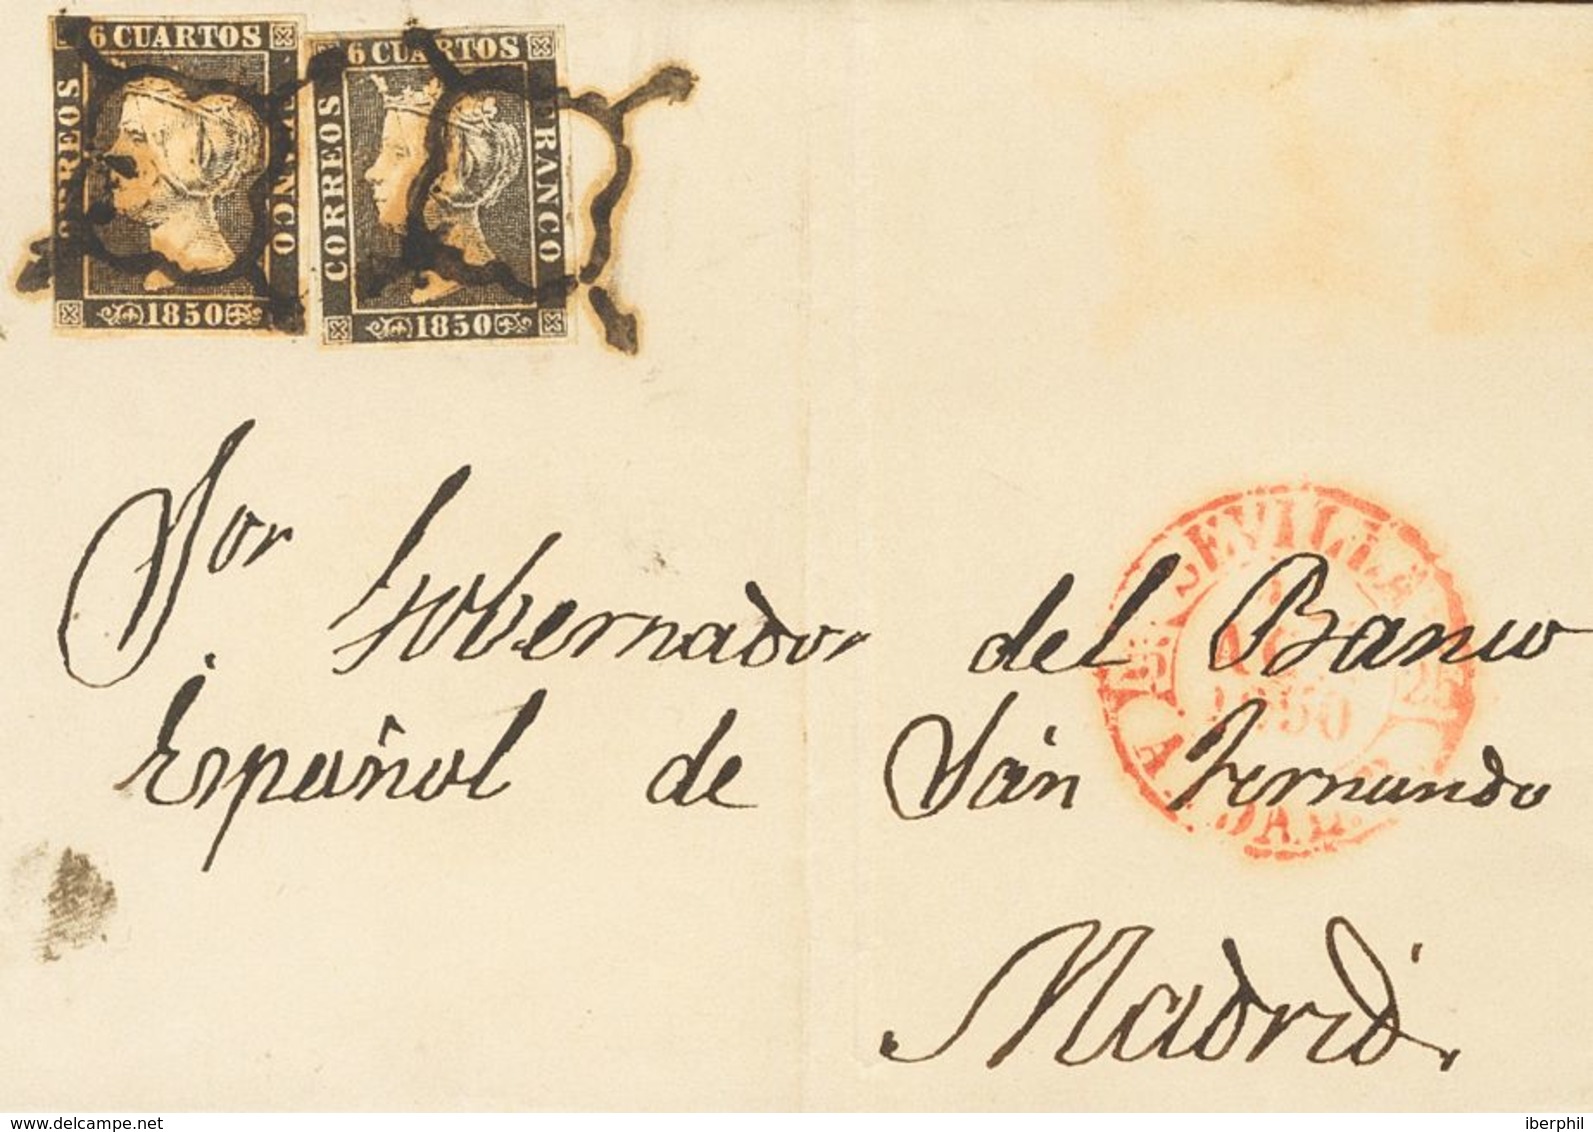 6 CUARTOS
CORREOS
FRANCO
1850
6 CUARTOS
CORREOS
FRANCO
1850
Sor Gobernador del Banco
Español de San Fernando
Madrid.
SEVILLA
1850
www.delcampe.net
iberphil